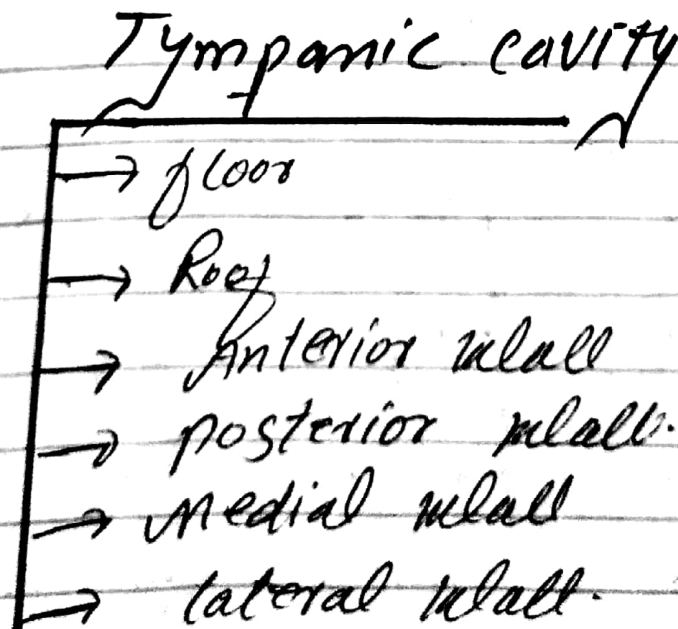 Tympanic cavity
→ floor
→ Roof
→ Anterior wall
→ posterior wall.
→ Medial wall
→ lateral wall.